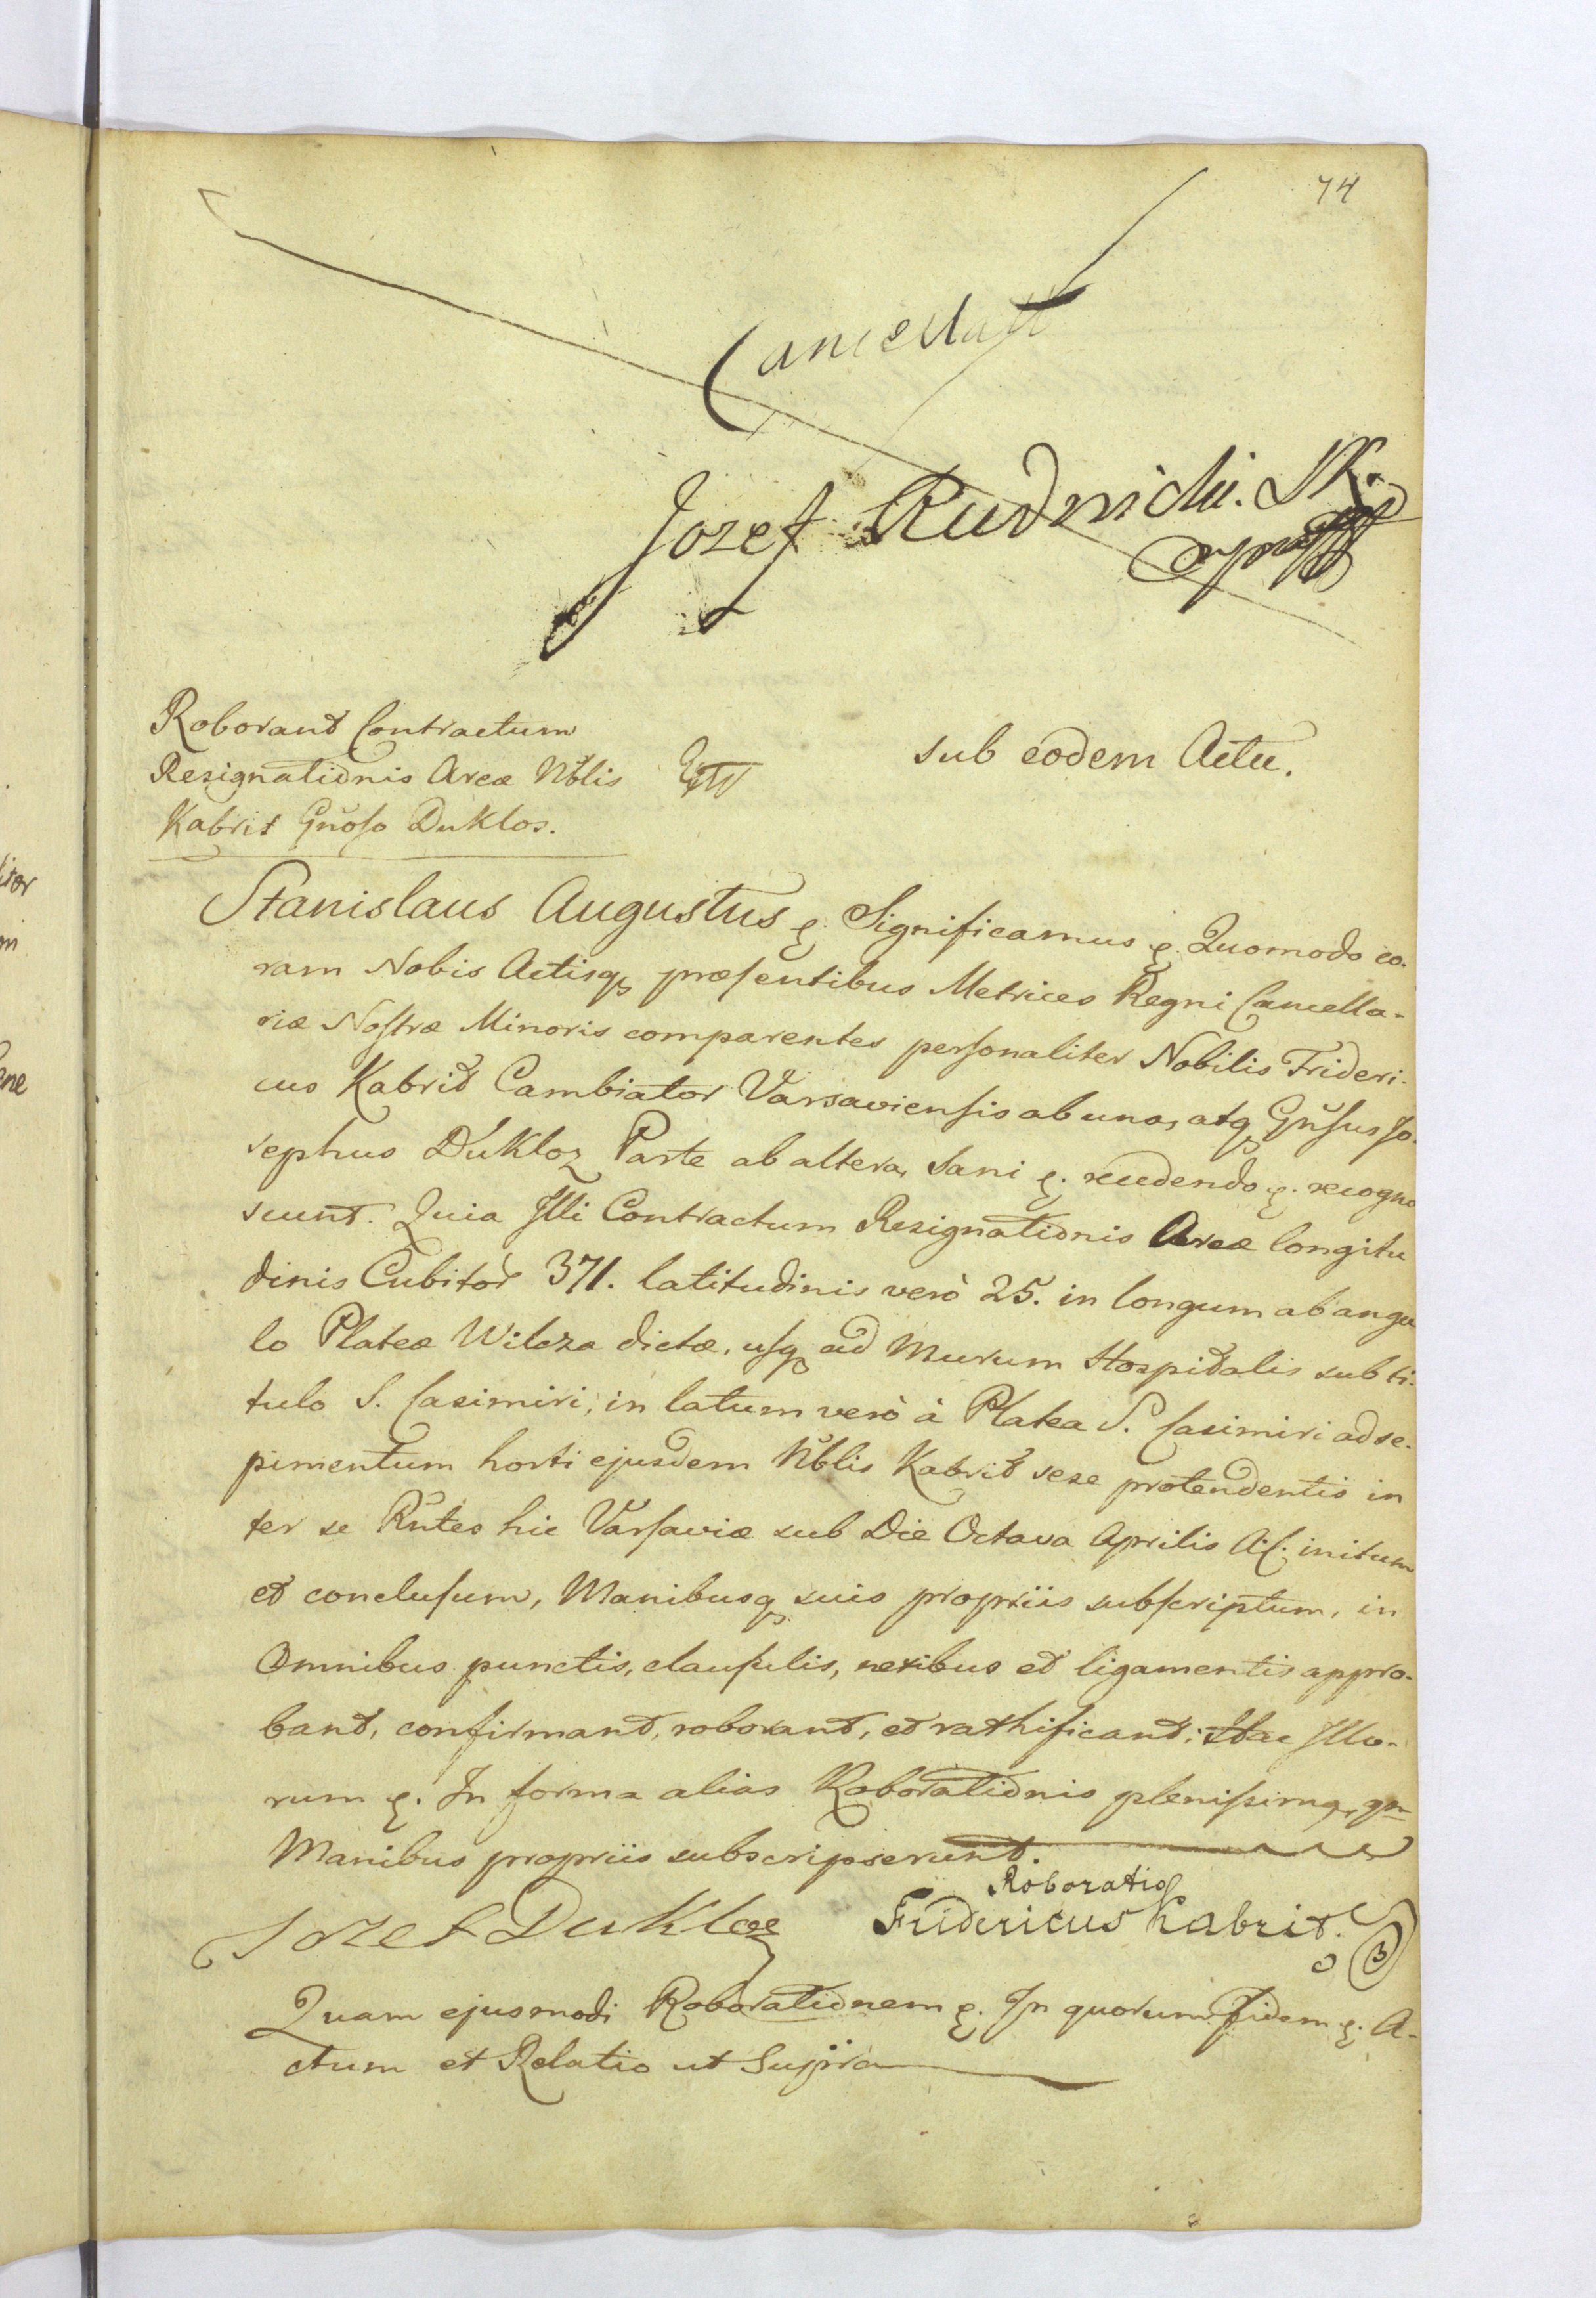 74
Cancellatt
Jozef Rudnicki. SK.
Roborant Contractum
Resignationis Areæ Nblis
Kabrit Gñoso Duklos.
sub eodem Actu.
Stanislaus Augustus &. Significamus &. Quomodo co-
ram Nobis Actisq præsentibus Metrices Regni Cancella-
riæ Nostræ Minoris comparentes personaliter Nobilis Frideri-
cus Kabrit Cambiator Varsaviensis ab una, atq Gñsus Jo-
sephus Dukloz Parte ab altera, Sani &. recedendo &. recogno
scunt. Quia Illi Contractum Resignationis Areæ longitu
dinis Cubitor 371. latitudinis verò 25. in longum ab angu
lo Plateæ Wilcza dictæ, usq ad Murum Hospitalis sub ti-
tulo S. Casimiri, in latum verò à Platea S. Casimiri ad se-
pimentum horti ejusdem Nblis Kabrit sese protendentis in
ter se Rñtes hic Varsaviæ sub Die Octava Aprilis A.C. initum
et conclusum, Manibusq suis propriis subscriptum, in
Omnibus punctis, clausulis, nexibus et ligamentis appro-
bant, confirmant, roborant, et rathificant; Hac Illo-
rum &. In forma alias Roborationis plenissima, qm
Manibus propriis subscripserunt.
Roboratio
Jozef Dukloz Fridericus Kabrit.
Quam ejusmodi Roborationem &. In quorum Fidem &. A-
ctum et Relatio ut Supra